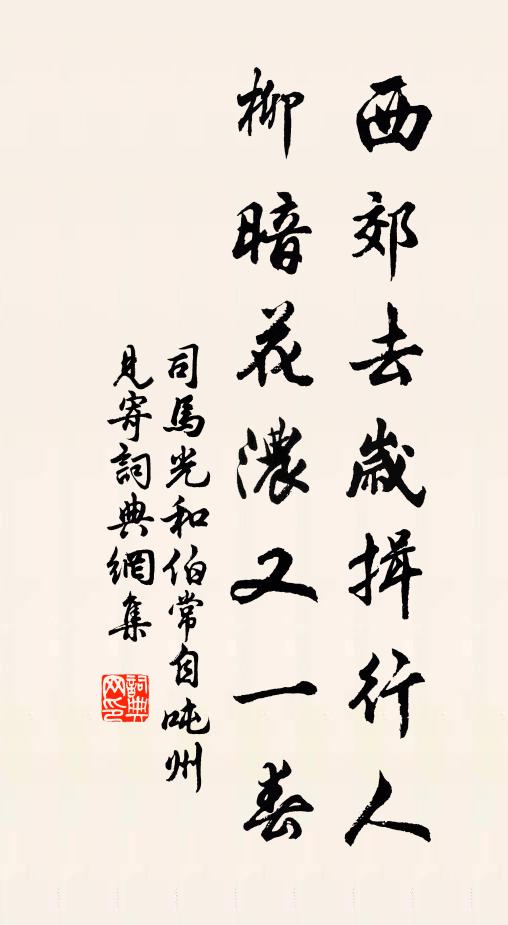 西郊去歲揖行人
柳暗花濃又一春
司馬光和伯常自吨州
見寄詞典網集
詞典網印